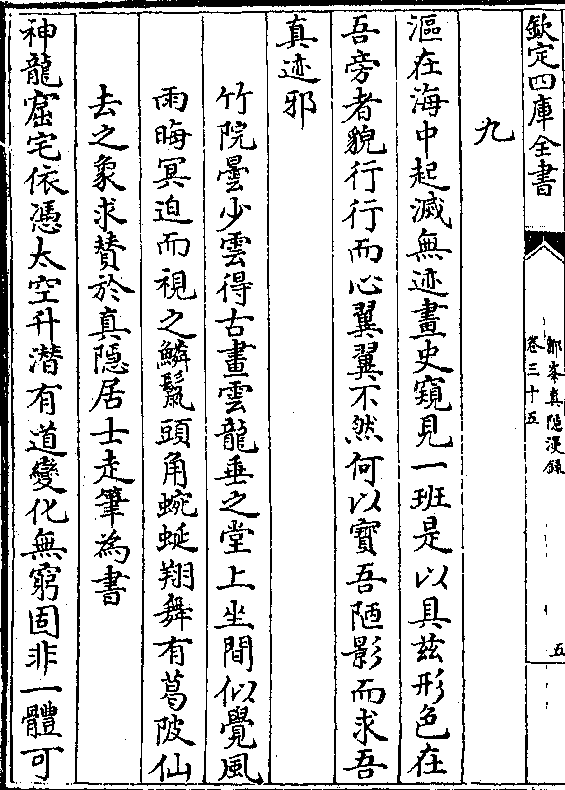 欽定四庫全書
鄮峯真隠漫録
卷三十五
五
九
漚在海中起滅無迹畫史窺見一班是以具兹形色在
吾旁者貌行行而心翼翼不然何以寳吾陋影而求吾
真迹邪
竹院曇少雲得古畫雲龍垂之堂上坐間似覺風
雨晦冥迫而視之鱗鬛頭角蜿蜒翔舞有葛陂仙
去之象求賛於真隠居士走筆為書
神龍窟宅依憑太空升潜有道變化無窮固非一體可